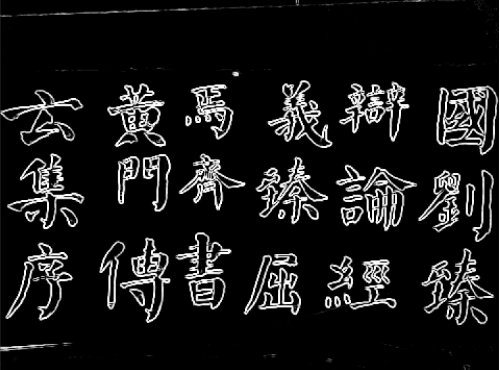 國劉臻
辯論經
義臻屈
焉齊書
黃門傳
云集序